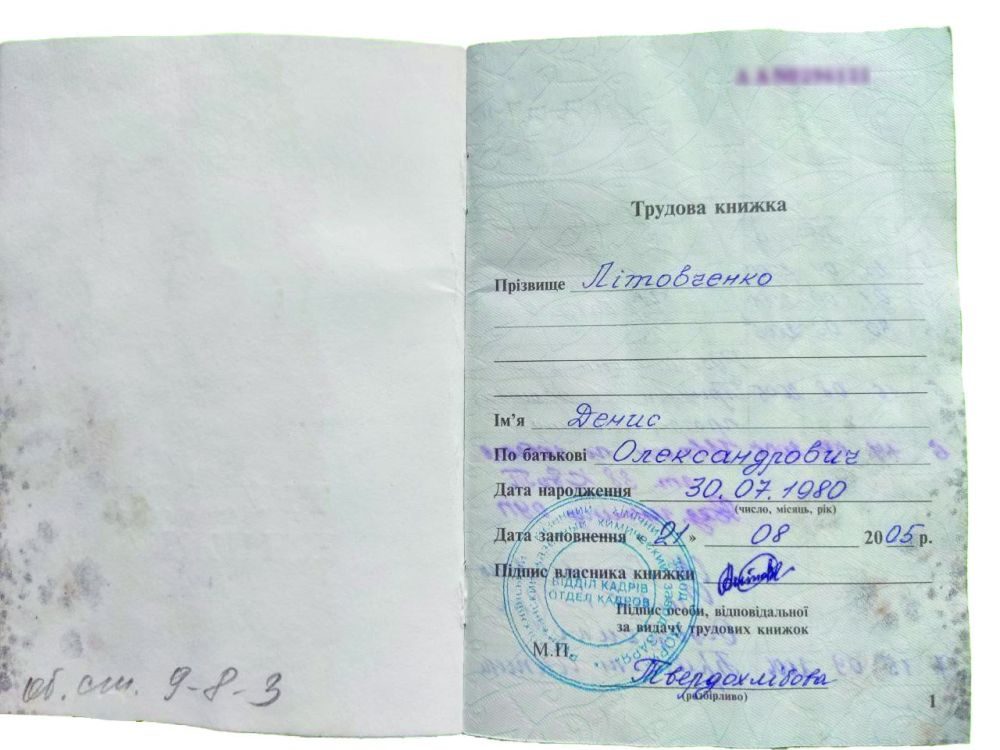 об. ст. 9-8-3
Трудова книжка
Прізвище Літовченко
Ім'я Денис
По батькові Олександрович
Дата народження 30.07.1980
(число, місяць, рік)
Дата заповнення «21» 08 2005 р.
Підпис власника книжки
ВІДДІЛ КАДРІВ
ОТДЕЛ КАДРОВ
Підпис особи, відповідальної
за видачу трудових книжок
М.П.
Твердохлібова
(розбірливо)
1